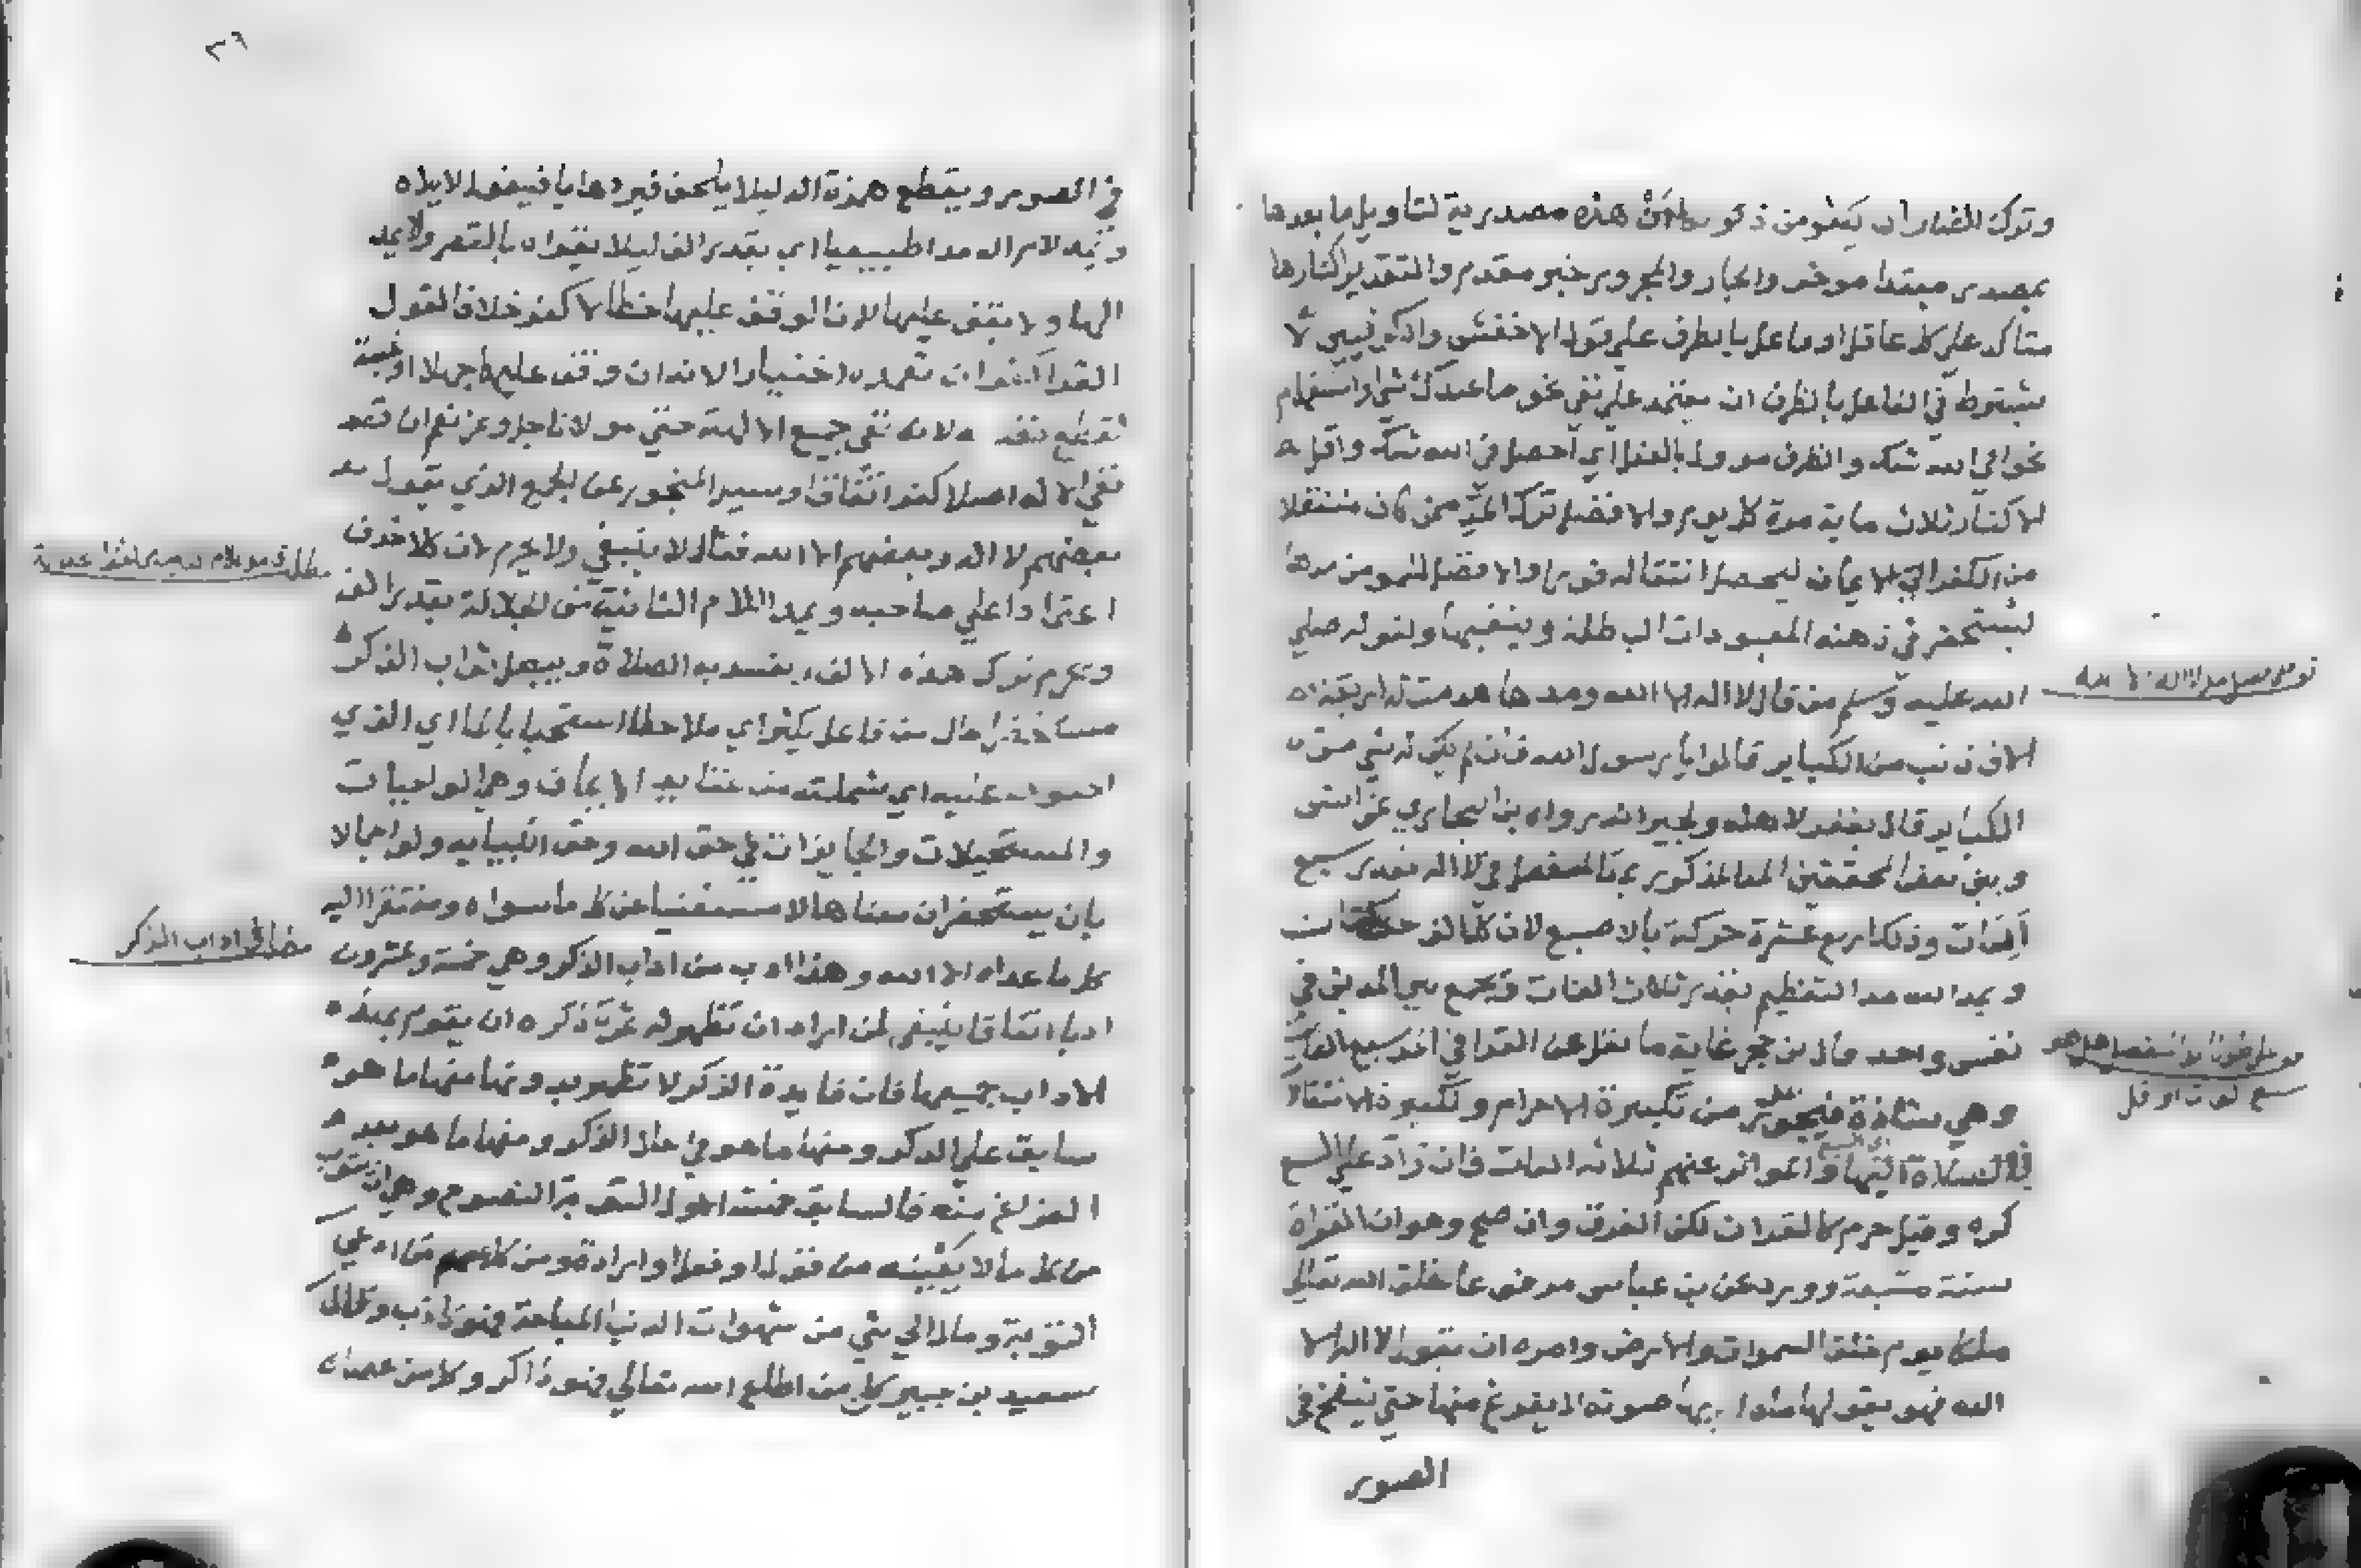 وترك المضار ان يكثر من ذكرها لان هذه مصدرية لتاويل ما بعدها
بمصدر مبتدا موخر والجار والمجرور خبر مقدم والتقدير اكثارها
متاكد على كل عاقل او فاعل بالظرف على قول الاخفش والكوفيين لا
يشترط في الفاعل بالظرف ان يعتمد على نفي نحو ما عندك شي او استفهام
نحو افي الله شك والظرف موول بالفعل اي احصل في الله شك واقل
الاكثار ثلاث ماية مرة كل يوم والافضل ترك المد ممن كان منتقلا
من الكفر الى الايمان ليحصل انتقاله فورا والافضل للمومن مدها
ليستحضر في ذهنه المعبودات الباطلة وينفيها ولقوله صلى
الله عليه وسلم من قال لا اله الا الله ومدها هدمت له اربعة
الاف ذنب من الكباير قالوا يا رسول الله فان لم يكن له شي من
الكباير قال يغفر لاهله ولجيرانه رواه بن البخاري عن انس
وبين بعض المحققين المد المذكور بمد المنفصل في لا اله بقدر سبع
الفات وذلك اربع عشرة حركة بالاصبع لان كل الف حركتان
ويمد الله مد التعظيم بقدر ثلاث الفات ويجمع بين المدين في
نفس واحد قال بن حجر غاية ما نقل عن القرا في اخر سبع الفات
وهي شاذة فيجوز من تكبيرة الاحرام وتكبيرة الانتقال
في الصلاة اليها والمتواتر عنهم ثلاثة الفات فان زاد على السبع
كره وقيل حرم كالقران لكن الفرق وان صح وهو ان القراة
سنة متبعة وورد عن بن عباس مرفوعا خلق الله تعالى
ملكا يوم خلق السموات والارض وامره ان يقول لا اله الا
الله فهو يقولها مادا بها صوته لا يفرغ منها حتى ينفخ في
الصور
في الصور ويقطع همزة اله ليلا يلحن فيردها يا فيقول لا يلاه
ويمد لام اله مدا طبيعيا اي بقدر الف ليلا يقراه بالقصر ولا يمد
الها ولا يقف عليها لان الوقف عليها خطا لا كفر خلاف القول
القرا كفر ان تعمده اختيارا لانه ان وقف عليها جهلا او غيبة
لقطع نفسه ولانه نفى جميع الالهة حتى مولانا جل وعز نعم ان قصد
نفي الاله اصلا كفر اتفاقا وسيل المنجور عن الجمع الذي يقول
بعضهم لا اله وبعضهم الا الله فقال لا ينبغي ولا يحرم لان كلا
اعتمادا على صاحبه ويمد اللام الثانية من الجلالة بقدر الف
ويحرم ترك هذه الالف وتفسد به الصلاة ويبطل ثواب الذكر
مستحضرا حال من فاعل يكثر اي ملاحظا استحبابا لما اي الذي
احتوت عليه اي شملته من عقايد الايمان وهي الواجبات
والمستحيلات والجايزات في حق الله وحق انبيايه ولو اجمالا
بان يستحضر ان معناها لا مستغنيا عن كل ما سواه ومفتقرا اليه
كل ما عداه الا الله وهذا ادب من اداب الذكر وهي خمسة وعشرون
ادبا اتفاقا ينبغي لمن اراد ان تظهر له ثمرة ذكره ان يقوم بهذه
الاداب جميعها فان فايدة الذكر لا تظهر بدونها منها ما هو
سابق على الذكر ومنها ما هو في حال الذكر ومنها ما هو بعد
الفراغ منه فالسابق خمسة الاول التوبة النصوح وهي ان يتوب
من كل ما لا يعنيه من قول او فعل او ارادة ومن كلامهم من ادعى
التوبة ومال الى شي من شهوات الدنيا المباحة فهو كاذب وقال
سعيد بن جبير كل من اطاع الله تعالى فهو ذاكر وكل من عصاه
مطلب في اداب الذكر